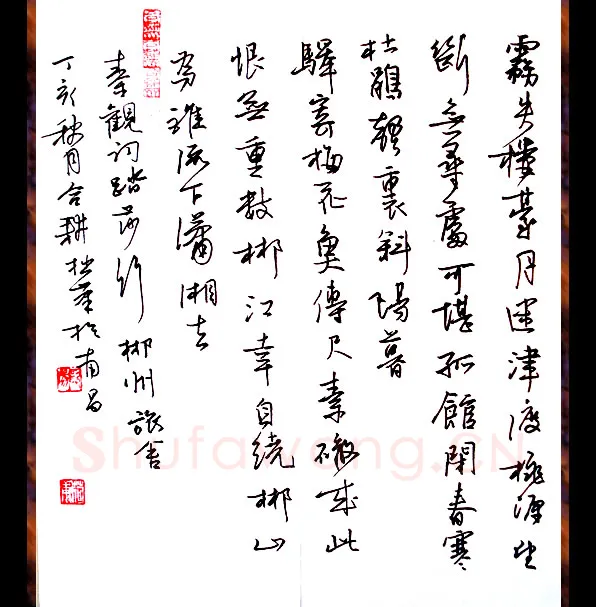 霧失樓臺月迷津渡桃源望
斷無尋處可堪孤館閉春寒
杜鵑聲裏斜陽暮
驛寄梅花魚傳尺素砌成此
恨無重數郴江幸自绕郴山
為誰流下瀟湘去
秦觀詞踏莎行 郴州旅舍
丁亥秋月合耕拙筆於南昌
Shufawang.CN